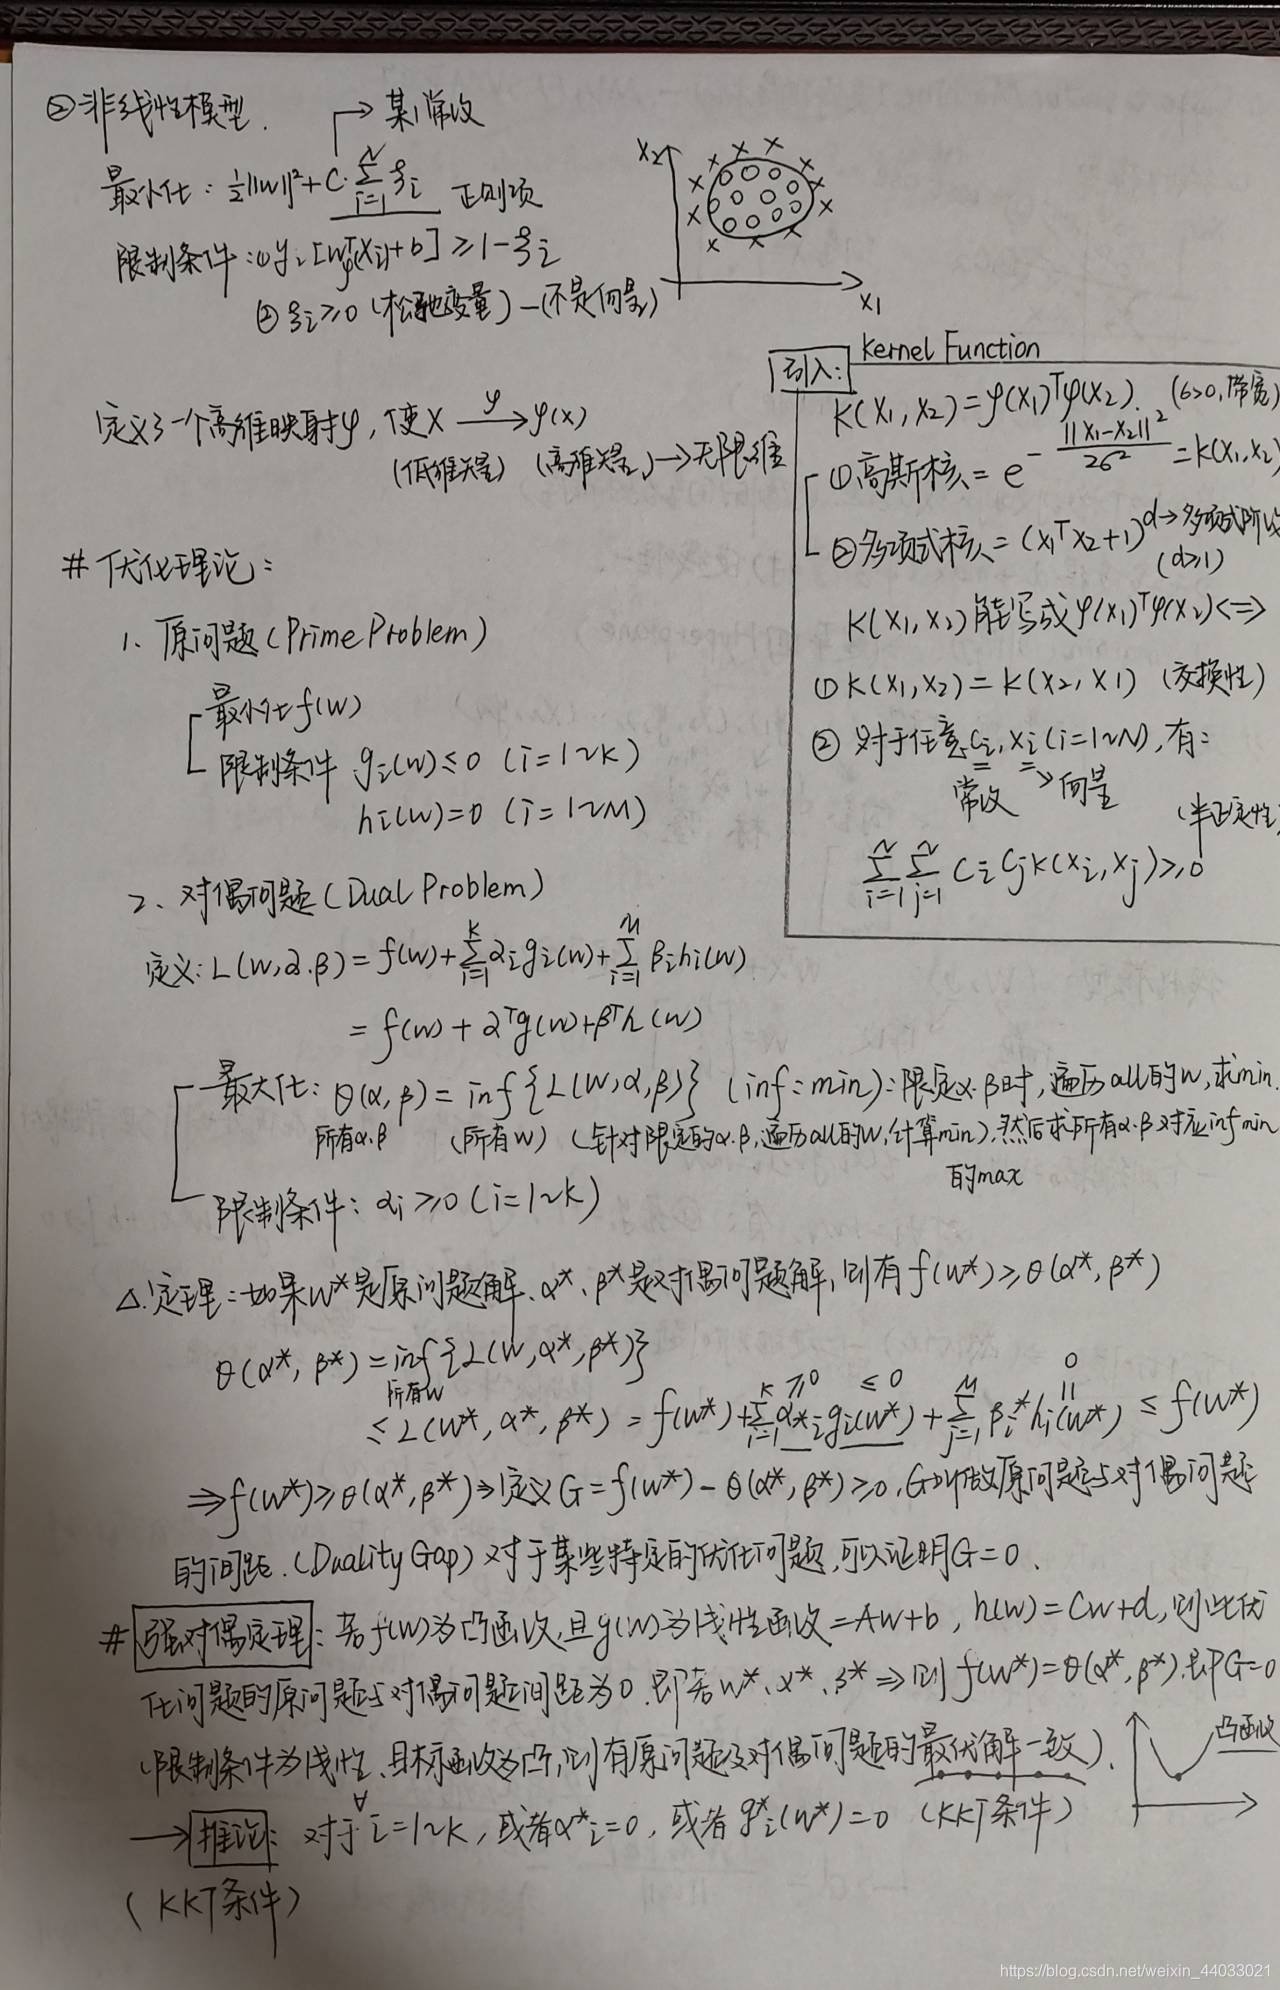 ②非线性模型.
→某个常数
最小化: ½||W||²+C·∑ᵢ₌₁ᴺ ξi 正则项
限制条件:① yi[WᵀφX(i)+b]≥1-ξi
② ξi≥0 (松弛变量)-(不是向量)
X2
X1
定义了一个高维映射φ, 使X —φ→ φ(x)
(低维矢量) (高维矢量)→无限维
引入: Kernel Function
K(X1,X2)=φ(X1)ᵀφ(X2). (σ>0,带宽)
①高斯核= e^(-||X1-X2||²/2σ²) =K(X1,X2)
②多项式核=(X1ᵀX2+1)^d→多项式阶数
(d≥1)
K(X1,X2)能写成φ(X1)ᵀφ(X2)<=>
① K(X1,X2)=K(X2,X1) (交换性)
② 对于任意Ci,Xi(i=1~N),有:
常数 →向量
(半正定性)
∑ᵢ₌₁ᴺ ∑ⱼ₌₁ᴺ CiCjK(Xi,Xj)≥0
# 优化理论:
1、原问题(Prime Problem)
最小化f(W)
限制条件 gi(W)≤0 (i=1~K)
hi(W)=0 (i=1~M)
2、对偶问题(Dual Problem)
定义:L(W,α.β)=f(W)+∑ᵢ₌₁ᴷ αigi(W)+∑ᵢ₌₁ᴹ βihi(W)
=f(W)+αᵀg(W)+βᵀh(W)
最大化: θ(α,β)=inf{L(W,α,β)} (inf:min):限定α.β时,遍历all的W,求min.
所有α.β (所有W) (针对限定的α.β,遍历all的W,计算min),然后求所有α.β对应inf min
的max
限制条件: αi≥0(i=1~K)
△.定理:如果W*是原问题解、α*、β*是对偶问题解,则有f(W*)≥θ(α*,β*)
θ(α*,β*)=inf{L(W,α*,β*)}
所有W
≥0 ≤0 0
≤L(W*,α*,β*)=f(W*)+∑ᵢ₌₁ᴷ α*igi(W*)+∑ⱼ₌₁ᴹ βi*hi(W*) ≤f(W*)
⇒f(W*)≥θ(α*,β*)⇒定义G=f(W*)-θ(α*,β*)≥0,G叫做原问题与对偶问题
的间距.(Duality Gap)对于某些特定的优化问题,可以证明G=0.
# 强对偶定理: 若f(W)为凸函数,且g(W)为线性函数=AW+b, h(W)=CW+d,则此优
化问题的原问题与对偶问题间距为0.即若W*、α*、β*⇒则f(W*)=θ(α*,β*).即G=0
(限制条件为线性、目标函数为凸,则有原问题及对偶问题的最优解一致).
凸函数
→推论: 对于∀i=1~K,或者α*i=0,或者g*i(W*)=0 (KKT条件)
(KKT条件)
https://blog.csdn.net/weixin_44033021